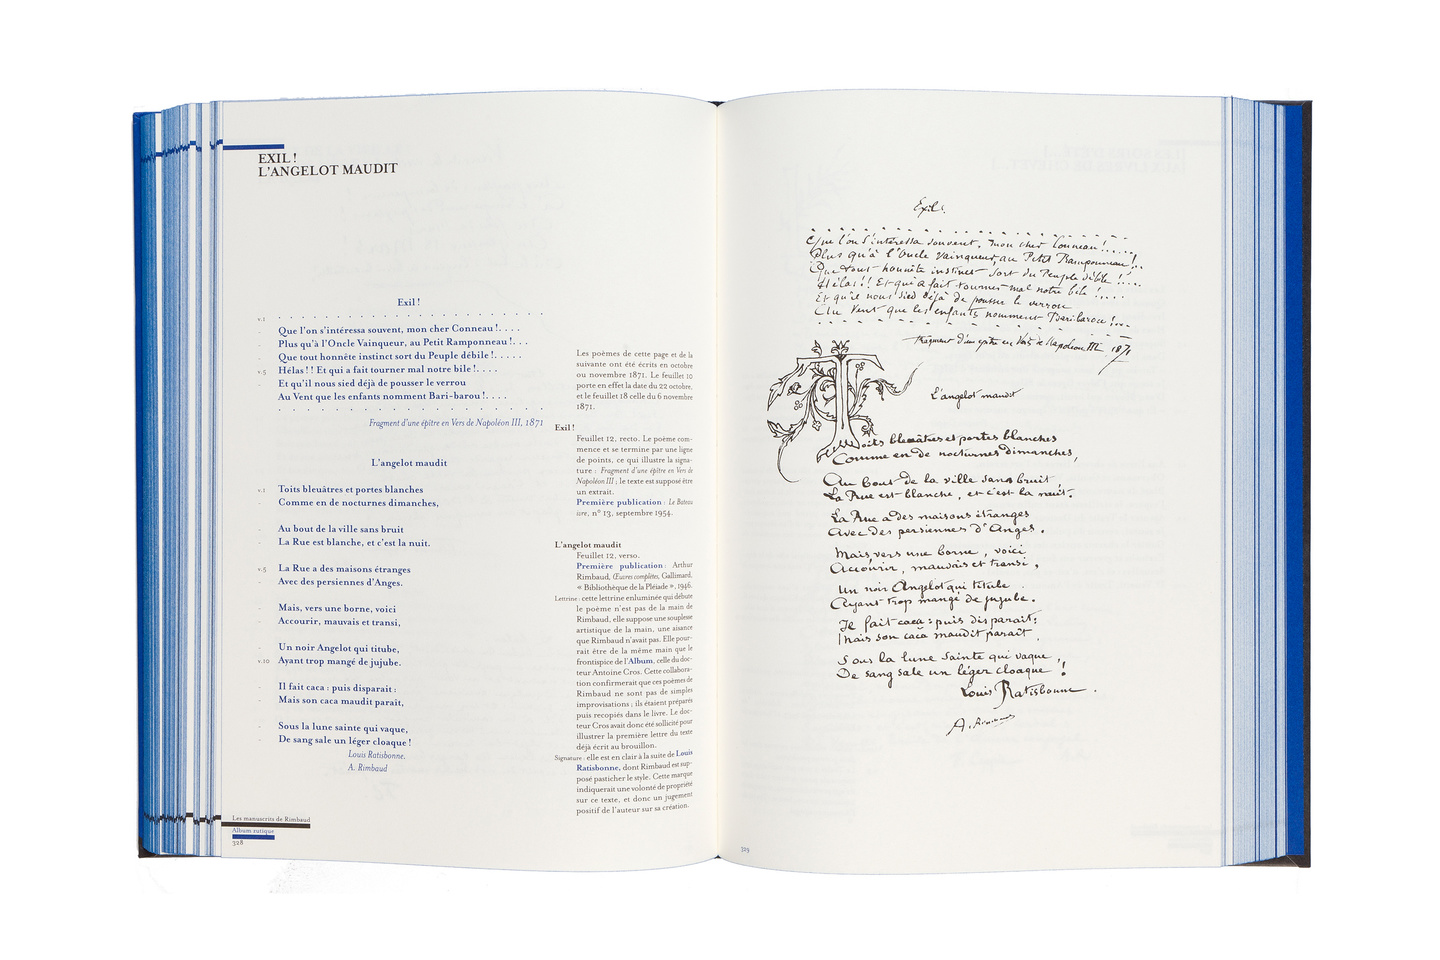 EXIL !
L'ANGELOT MAUDIT
Exil !
v.1 . . . . . . . . . . . . . . . . . . . . .
Que l'on s'intéressa souvent, mon cher Conneau !. . . .
Plus qu'à l'Oncle Vainqueur, au Petit Ramponneau !. . .
Que tout honnête instinct sort du Peuple débile !. . . . .
v.5 Hélas ! ! Et qui a fait tourner mal notre bile !. . . .
Et qu'il nous sied déjà de pousser le verrou
Au Vent que les enfants nomment Bari-barou !. . . .
. . . . . . . . . . . . . . . . . . . . .
Fragment d'une épître en Vers de Napoléon III, 1871
L'angelot maudit
v.1 Toits bleuâtres et portes blanches
Comme en de nocturnes dimanches,
Au bout de la ville sans bruit
La Rue est blanche, et c'est la nuit.
v.5 La Rue a des maisons étranges
Avec des persiennes d'Anges.
Mais, vers une borne, voici
Accourir, mauvais et transi,
Un noir Angelot qui titube,
v.10 Ayant trop mangé de jujube.
Il fait caca : puis disparait :
Mais son caca maudit parait,
Sous la lune sainte qui vaque,
De sang sale un léger cloaque !
Louis Ratisbonne.
A. Rimbaud
Les poèmes de cette page et de la
suivante ont été écrits en octobre
ou novembre 1871. Le feuillet 10
porte en effet la date du 22 octobre,
et le feuillet 18 celle du 6 novembre
1871.
Exil !
Feuillet 12, recto. Le poème com-
mence et se termine par une ligne
de points, ce qui illustre la signa-
ture : Fragment d'une épître en Vers de
Napoléon III ; le texte est supposé être
un extrait.
Première publication : Le Bateau
ivre, n° 13, septembre 1954.
L'angelot maudit
Feuillet 12, verso.
Première publication : Arthur
Rimbaud, Œuvres complètes, Gallimard,
« Bibliothèque de la Pléiade », 1946.
Lettrine : cette lettrine enluminée qui débute
le poème n'est pas de la main de
Rimbaud, elle suppose une souplesse
artistique de la main, une aisance
que Rimbaud n'avait pas. Elle pour-
rait être de la même main que le
frontispice de l'Album, celle du doc-
teur Antoine Cros. Cette collabora-
tion confirmerait que ces poèmes de
Rimbaud ne sont pas de simples
improvisations ; ils étaient préparés
puis recopiés dans le livre. Le doc-
teur Cros avait donc été sollicité pour
illustrer la première lettre du texte
déjà écrit au brouillon.
Signature : elle est en clair à la suite de Louis
Ratisbonne, dont Rimbaud est sup-
posé pasticher le style. Cette marque
indiquerait une volonté de propriété
sur ce texte, et donc un jugement
positif de l'auteur sur sa création.
Les manuscrits de Rimbaud
Album zutique
328
Exil !
. . . . . . . . . . . . . . . . . . . . .
Que l'on s'intéressa souvent, mon cher Conneau !.....
Plus qu'à l'Oncle Vainqueur, au Petit Ramponneau !..
Que tout honnête instinct sort du Peuple débile !....
Hélas !! Et qui a fait tourner mal notre bile !....
Et qu'il nous sied déjà de pousser le verrou
Au Vent que les enfants nomment Bari-barou !...
. . . . . . . . . . . . . . . . . . . . .
Fragment d'une épître en Vers de Napoléon III, 1871
L'angelot maudit
Toits bleuâtres et portes blanches
Comme en de nocturnes dimanches,
Au bout de la ville sans bruit
La Rue est blanche, et c'est la nuit.
La Rue a des maisons étranges
Avec des persiennes d'Anges.
Mais, vers une borne, voici
Accourir, mauvais et transi,
Un noir Angelot qui titube,
Ayant trop mangé de jujube.
Il fait caca : puis disparait :
Mais son caca maudit parait,
Sous la lune sainte qui vaque,
De sang sale un léger cloaque !
Louis Ratisbonne.
A. Rimbaud
329